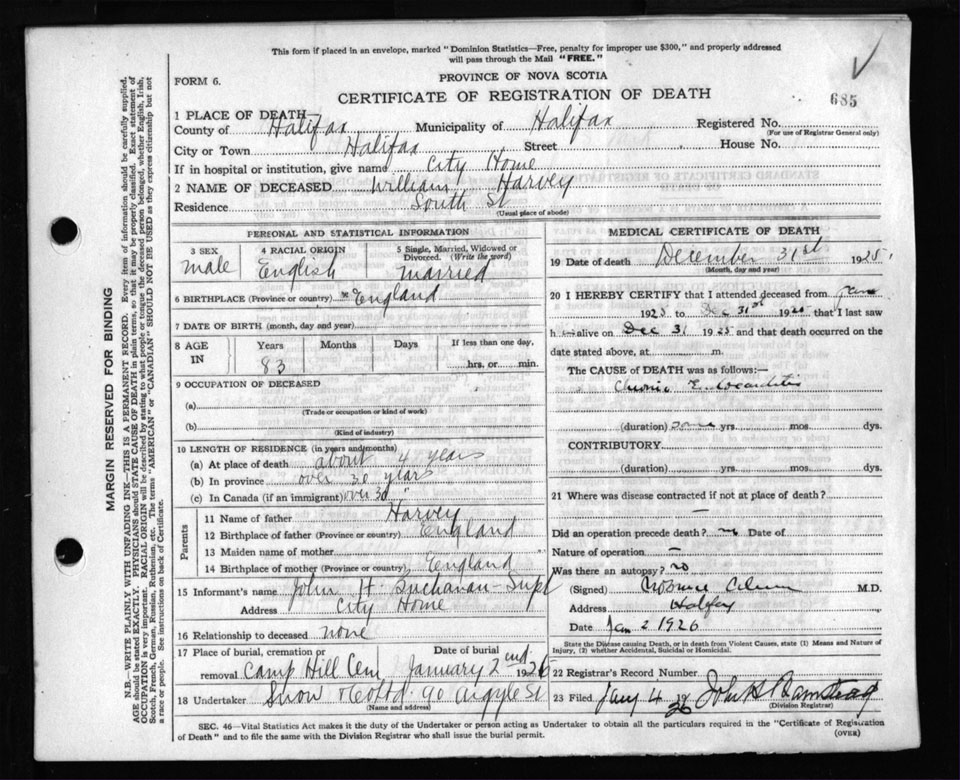 This form if placed in an envelope, marked "Dominion Statistics—Free, penalty for improper use $300," and properly addressed
will pass through the Mail "FREE."
FORM 6.
PROVINCE OF NOVA SCOTIA
CERTIFICATE OF REGISTRATION OF DEATH
685
MARGIN RESERVED FOR BINDING
N.B.—WRITE PLAINLY WITH UNFADING INK—THIS IS A PERMANENT RECORD. Every item of information should be carefully supplied.
AGE should be stated EXACTLY. PHYSICIANS should STATE CAUSE OF DEATH in plain terms, so that it may be properly classified. Exact statement of
OCCUPATION is very important. RACIAL ORIGIN will be described by stating to what people or tongue the deceased person belonged, whether English, Irish,
Scotch, French, German, Russian, Ruthenian, etc. The terms "AMERICAN" or "CANADIAN" SHOULD NOT BE USED as they express citizenship but not
a race or people. See instructions on back of Certificate.
1 PLACE OF DEATH
County of Halifax Municipality of Halifax Registered No.
(For use of Registrar General only)
City or Town Halifax Street House No.
If in hospital or institution, give name City Home
2 NAME OF DECEASED William Harvey
Residence South St
(Usual place of abode)
PERSONAL AND STATISTICAL INFORMATION
3 SEX 4 RACIAL ORIGIN 5 Single, Married, Widowed or
Divorced. (Write the word)
male English married
6 BIRTHPLACE (Province or country) England
7 DATE OF BIRTH (month, day and year)
8 AGE IN Years Months Days If less than one day,
83 hrs. or min.
9 OCCUPATION OF DECEASED
(a)
(Trade or occupation or kind of work)
(b)
(Kind of industry)
10 LENGTH OF RESIDENCE (in years and months)
(a) At place of death about 4 years
(b) In province over 30 years
(c) In Canada (if an immigrant) over 30 "
Parents
11 Name of father Harvey
12 Birthplace of father (Province or country) England
13 Maiden name of mother
14 Birthplace of mother (Province or country) England
15 Informant's name John H. Buchanan - Supt
Address City Home
16 Relationship to deceased none
17 Place of burial, cremation or Date of burial
removal Camp Hill Cem January 2nd 1926
18 Undertaker Snow & Co Ltd. 90 Argyle St
(Name and address)
MEDICAL CERTIFICATE OF DEATH
19 Date of death December 31st 1925
(Month, day and year)
20 I HEREBY CERTIFY that I attended deceased from
1925 to Dec 31st 1925 that I last saw
h alive on Dec 31 1925 and that death occurred on the
date stated above, at m.
The CAUSE of DEATH was as follows:—
Chronic Endocarditis
(duration) yrs. mos. dys.
CONTRIBUTORY
(duration) yrs. mos. dys.
21 Where was disease contracted if not at place of death?
—
Did an operation precede death? Date of
Nature of operation —
Was there an autopsy? no
(Signed) M.D.
Address Halifax
Date Jan 2 1926
State the Disease causing Death, or in death from Violent Causes, state (1) Means and Nature of
Injury, (2) whether Accidental, Suicidal or Homicidal.
22 Registrar's Record Number
23 Filed Jany 4 1926 John H Bamstead
(Division Registrar)
SEC. 46—Vital Statistics Act makes it the duty of the Undertaker or person acting as Undertaker to obtain all the particulars required in the "Certificate of Registration
of Death" and to file the same with the Division Registrar who shall issue the burial permit.
(OVER)